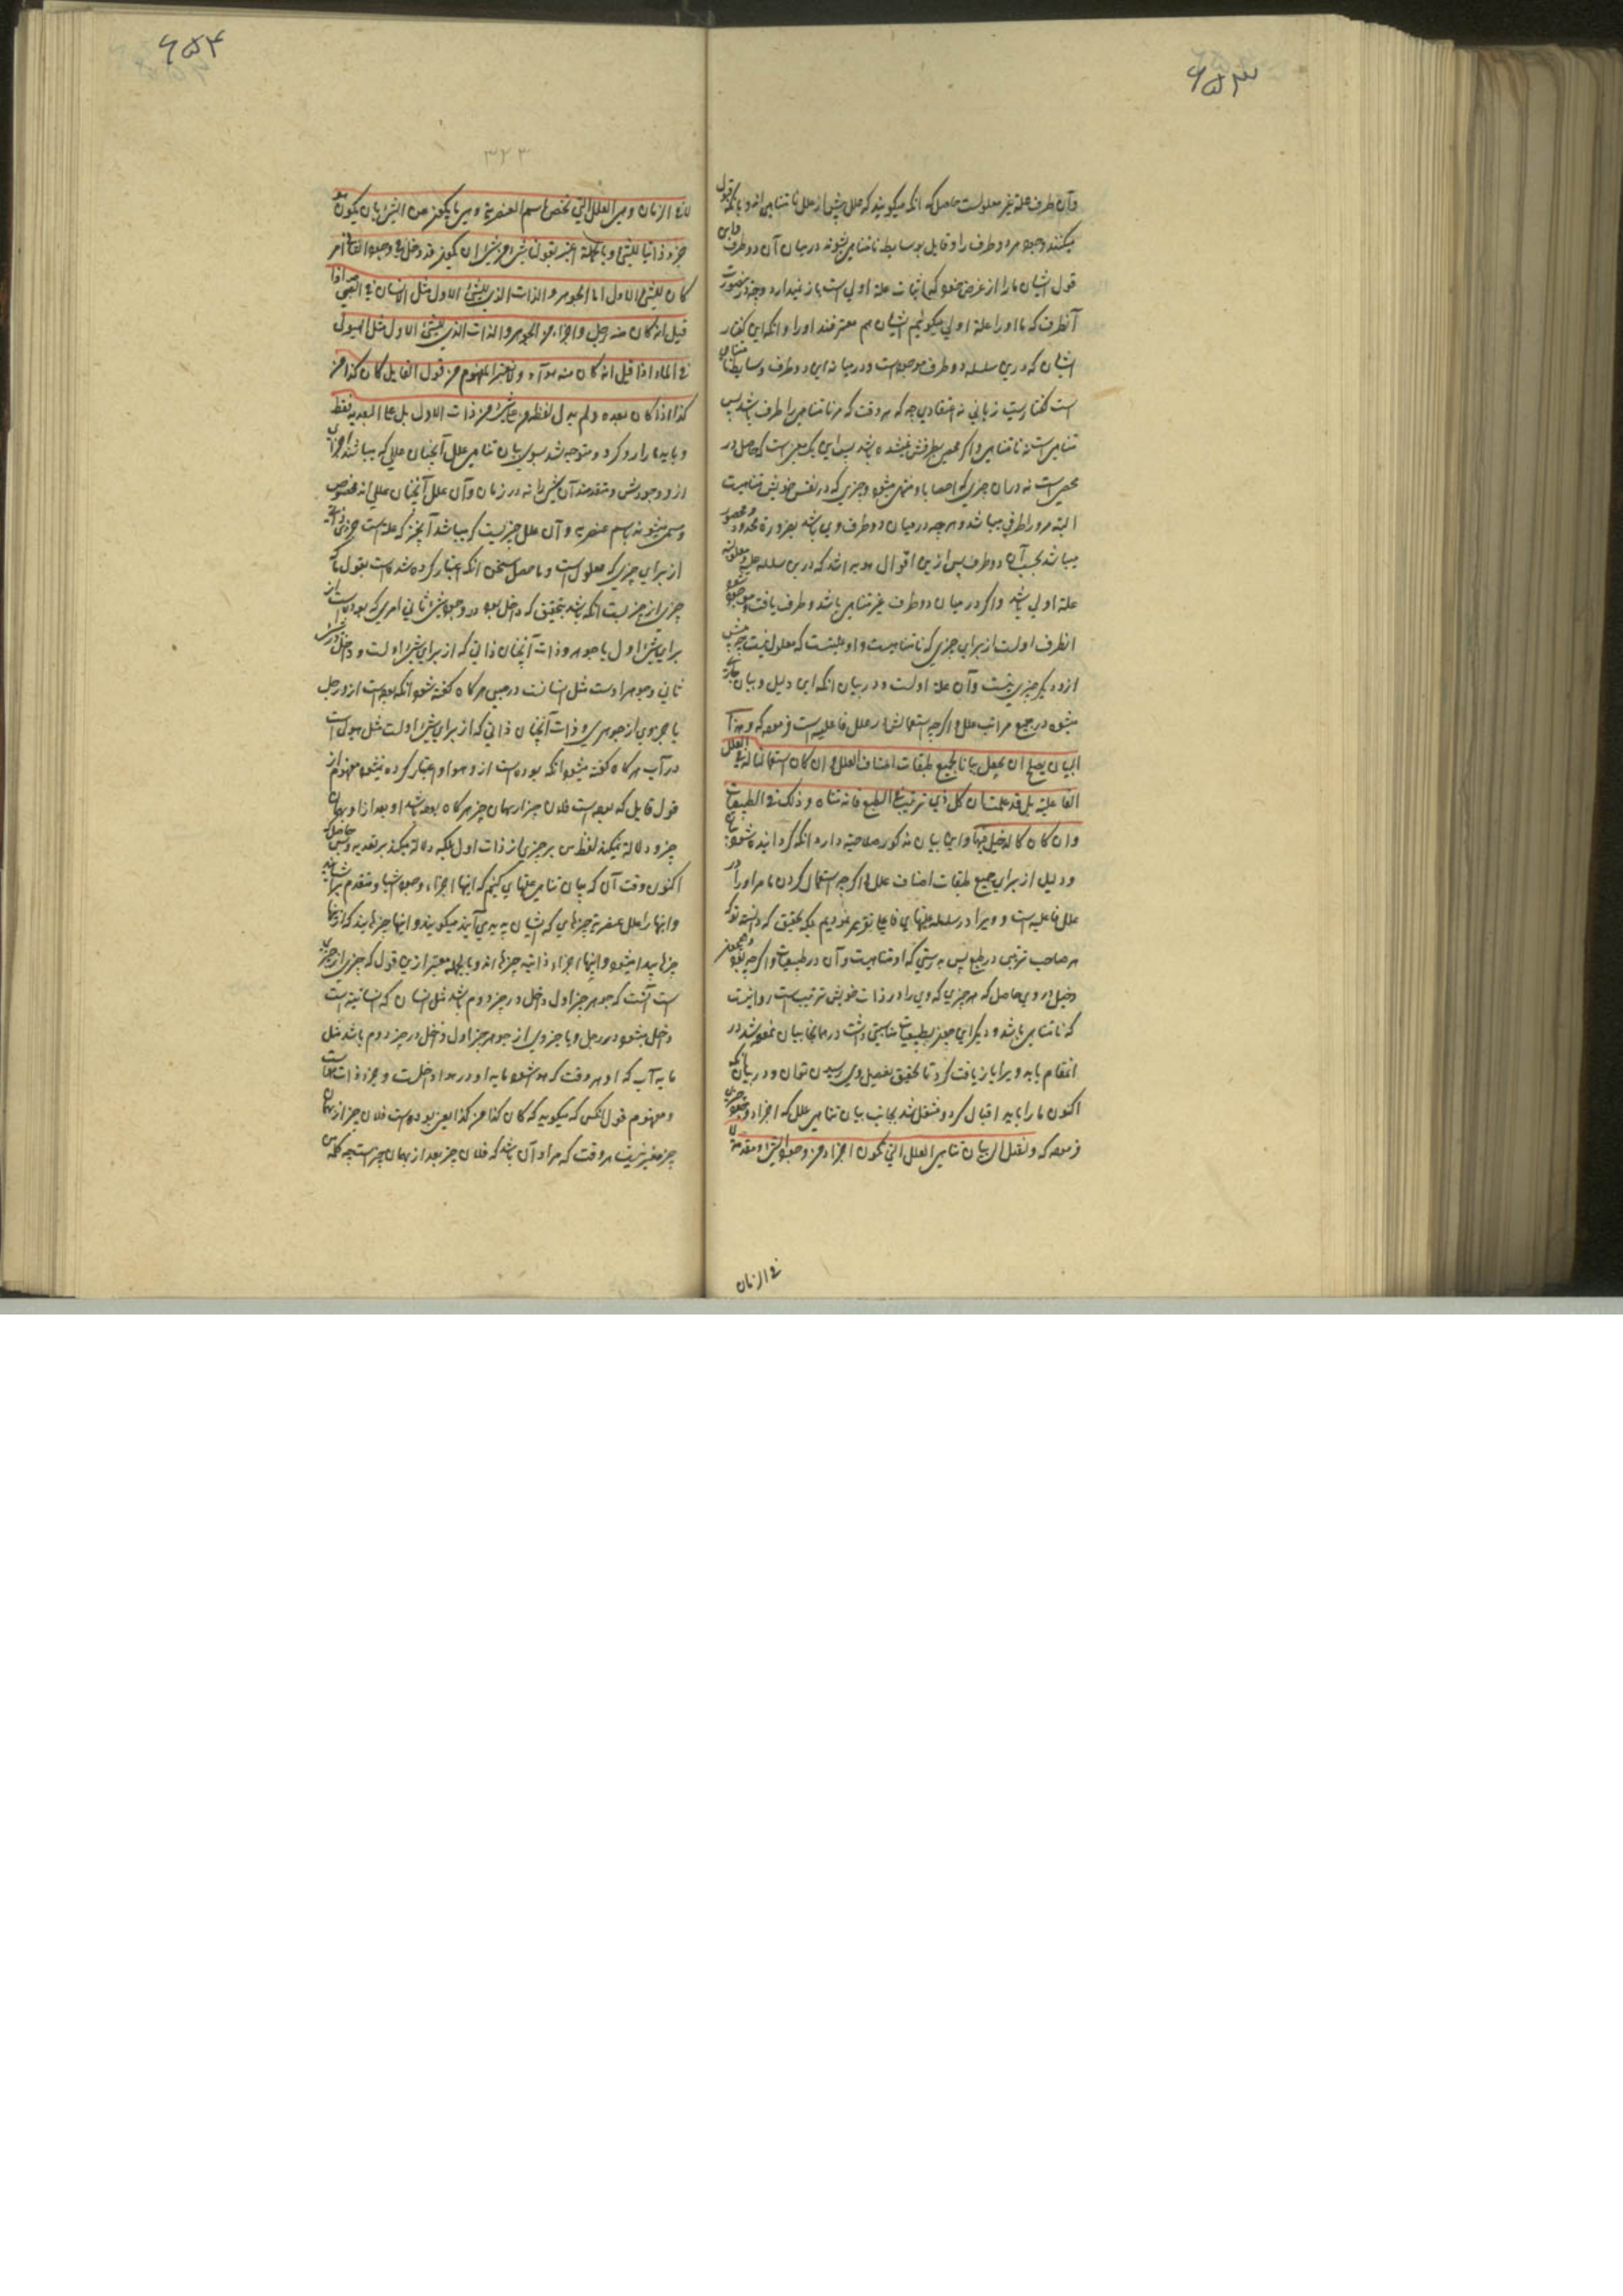 ۶۵۳
وآن طرف علة غیر معلولست حاصل که انکه میکویند که علل پیش از علل نا متناهی اند و بانکه قول
میکنند وجود هر دو طرف را و قایل بوسایط نا متناهی میشوند درمیان آن دو طرف و این
قول ایشان ما را از غرض خود که اثبات علة اولی است باز نمیدارد
آنطرف که ما او را علة اولی میکوئیم ایشان هم معترفند او را و انکه این کفتار
ایشان که درین سلسله دو طرف موجود است و درمیانه این دو طرف وسایط نا متناهی
است کفتاریست زبانی نه اعتقادی چه که هر وقت که مر نا متناهی را طرف باشد پس
متناهی است نه نا متناهی
محصی است نه در آن چیزی که احصا باو منتهی میشود و چیزی که در نفس خویش متناهیست
البته مر او را طرفی میباشد و هر چه درمیان دو طرف وی باشد بضرورة محدود و محصور
میباشد پس ازین اقوال هویدا شد که درین سلسله علل و معلولات
علة اولی باشد و اکر درمیان دو طرف غیر متناهی باشد و طرف یافت و موجود شود
انطرف اولست از برای چیزی که نا متناهیست و او علتیست که معلول نیست
ازو دیکر چیزی نیست وآن علة اولست و در بیان انکه این دلیل و بیان جاری
میشود در جمیع مراتب علل و اکر چه استعمالش در علل فاعلیه است فرموده که و هذا
البیان یصلح ان یجعل بیانا لجمیع طبقات اصناف العلل و ان کان استعمالنا له فی العلل
الفاعلیة بل قد علمت ان کل ذی ترتیب فی الطبع فانه متناه و ذلک فی الطبیعیات
وان کان کالدخیل فیها و این بیان مذکور صلاحیة دارد انکه کردانیده شود بیان
و دلیل از برای جمیع طبقات اصناف علل و اکر چه استعمال کردن ما مر او را در
علل فاعلیه است و ویرا در سلسله علتهای فاعلی تقریر نمودیم بلکه بتحقیق که دانسته تو که
هر صاحب ترتیبی در طبع پس بدرستی که او متناهیست وآن در طبیعیات و اکر چه بود همچون
دخیل در وی حاصل که هر چیزی که وی را در ذات خویش ترتیب است روا نیست
که نا متناهی باشد
انمقام باید ویرا بازیافت کرد تا بتحقیق تفصیل وی رسیدن توان و در بیان انکه
اکنون ما را باید اقبال کرد و مشتغل شد بجانب بیان تناهی علل که اجزاء وجود چیزی
فرموده که و لنقبل الی بیان تناهی العلل التی تکون اجزاء من وجود الشئ و متقدمة
فی الزمان
۶۵۴
۳۲۳
لا فی الزمان و هی العلل التی تختص باسم العنصریة و هی ما یکون من الشئ بان یکون هو
جزء ذاتیا للشئ و بالجملة اعتبر بقولنا شئ من شئ ان یکون قد دخل فی وجود الثانی امر
کان للشئ الاول اما الجوهر و الذات الذی للشئ الاول مثل الانسان فی الصبی اذا
قیل انه کان منه رجل و اجزاء من الجوهر و الذات الذی للشئ الاول مثل الهیولی
فی الماء اذا قیل انه کان منه هواء ولا تعتبر المفهوم من قول القایل کان کذا من
کذا اذا کان بعده و لم یدل لفظة من علی شئ من ذات الاول بل علی البعدیة فقط
و باید ما را رو کرد و متوجه شد بسوی بیان تناهی علل آنچنان عللی که میباشند اجزای
از وجودش و متقدمند آن شئ را نه در زمان وآن علل آنچنان عللی اند مخصوص
و مسمی میشوند باسم عنصریه و آن علل چیزیست که میباشد آنچیز که علة است جزوی
از برای چیزی که معلول است و ماحصل سخن انکه اعتبار کرده شده است بقول ما که
چیزی از چیزیست انکه باشد بتحقیق که داخل بود در وجود شئ ثانی امری که بوده است از
برای شئ اول یا جوهر و ذات آنچنان ذاتی که از برای شئ اولست و داخل
ثانی وجوهر اوست مثل انسانست در صبی هر کاه کفته شود انکه بوده است ازو رجل
یا جزوی از جوهری و ذات آنچنان ذاتی که از برای شئ اولست مثل هیولی است
در آب هر کاه کفته میشود انکه بوده است ازو هوا و اعتبار کرده نمیشود مفهوم از
قول قایل که بوده است فلان چیز از بهمان چیز هر کاه بوده باشد او بعد از او
و دلالة نمیکند لفظ من بر چیزی از ذات اول بلکه دلالة میکند بر بعدیة و بس حاصل که
اکنون وقت آن که بیان تناهی علتهای کنیم که اینها اجزاء وجود اشیا و متقدم بر اشیااند
و اینها را علل عنصریه چیزهای که ایشان پدید می آیند میکویند و اینها چیزهایند که از اینها
چیزها پیدا میشود و اینها اجزاء ذاتیه چیزها اند و بالجمله معتبر ازین قول که چیزی از چیزی
است آنست که جوهر چیز اول داخل در چیز دوم باشد مثل انسان که انسانیة است
داخل میشود در رجل و یا جزوی از جوهر چیز اول داخل در چیز دوم باشد مثل
مایه آب که او هر وقت که هوا شود مایه او در هوا داخلست و جزء ذات هواست
و مفهوم قول انکس که میکوید که کان کذا من کذا یعنی بوده است فلان چیز از بهمان
چیز معتبر نیست هر وقت که مراد آن باشد که فلان چیز بعد از بهمان چیز است چه کلمه من